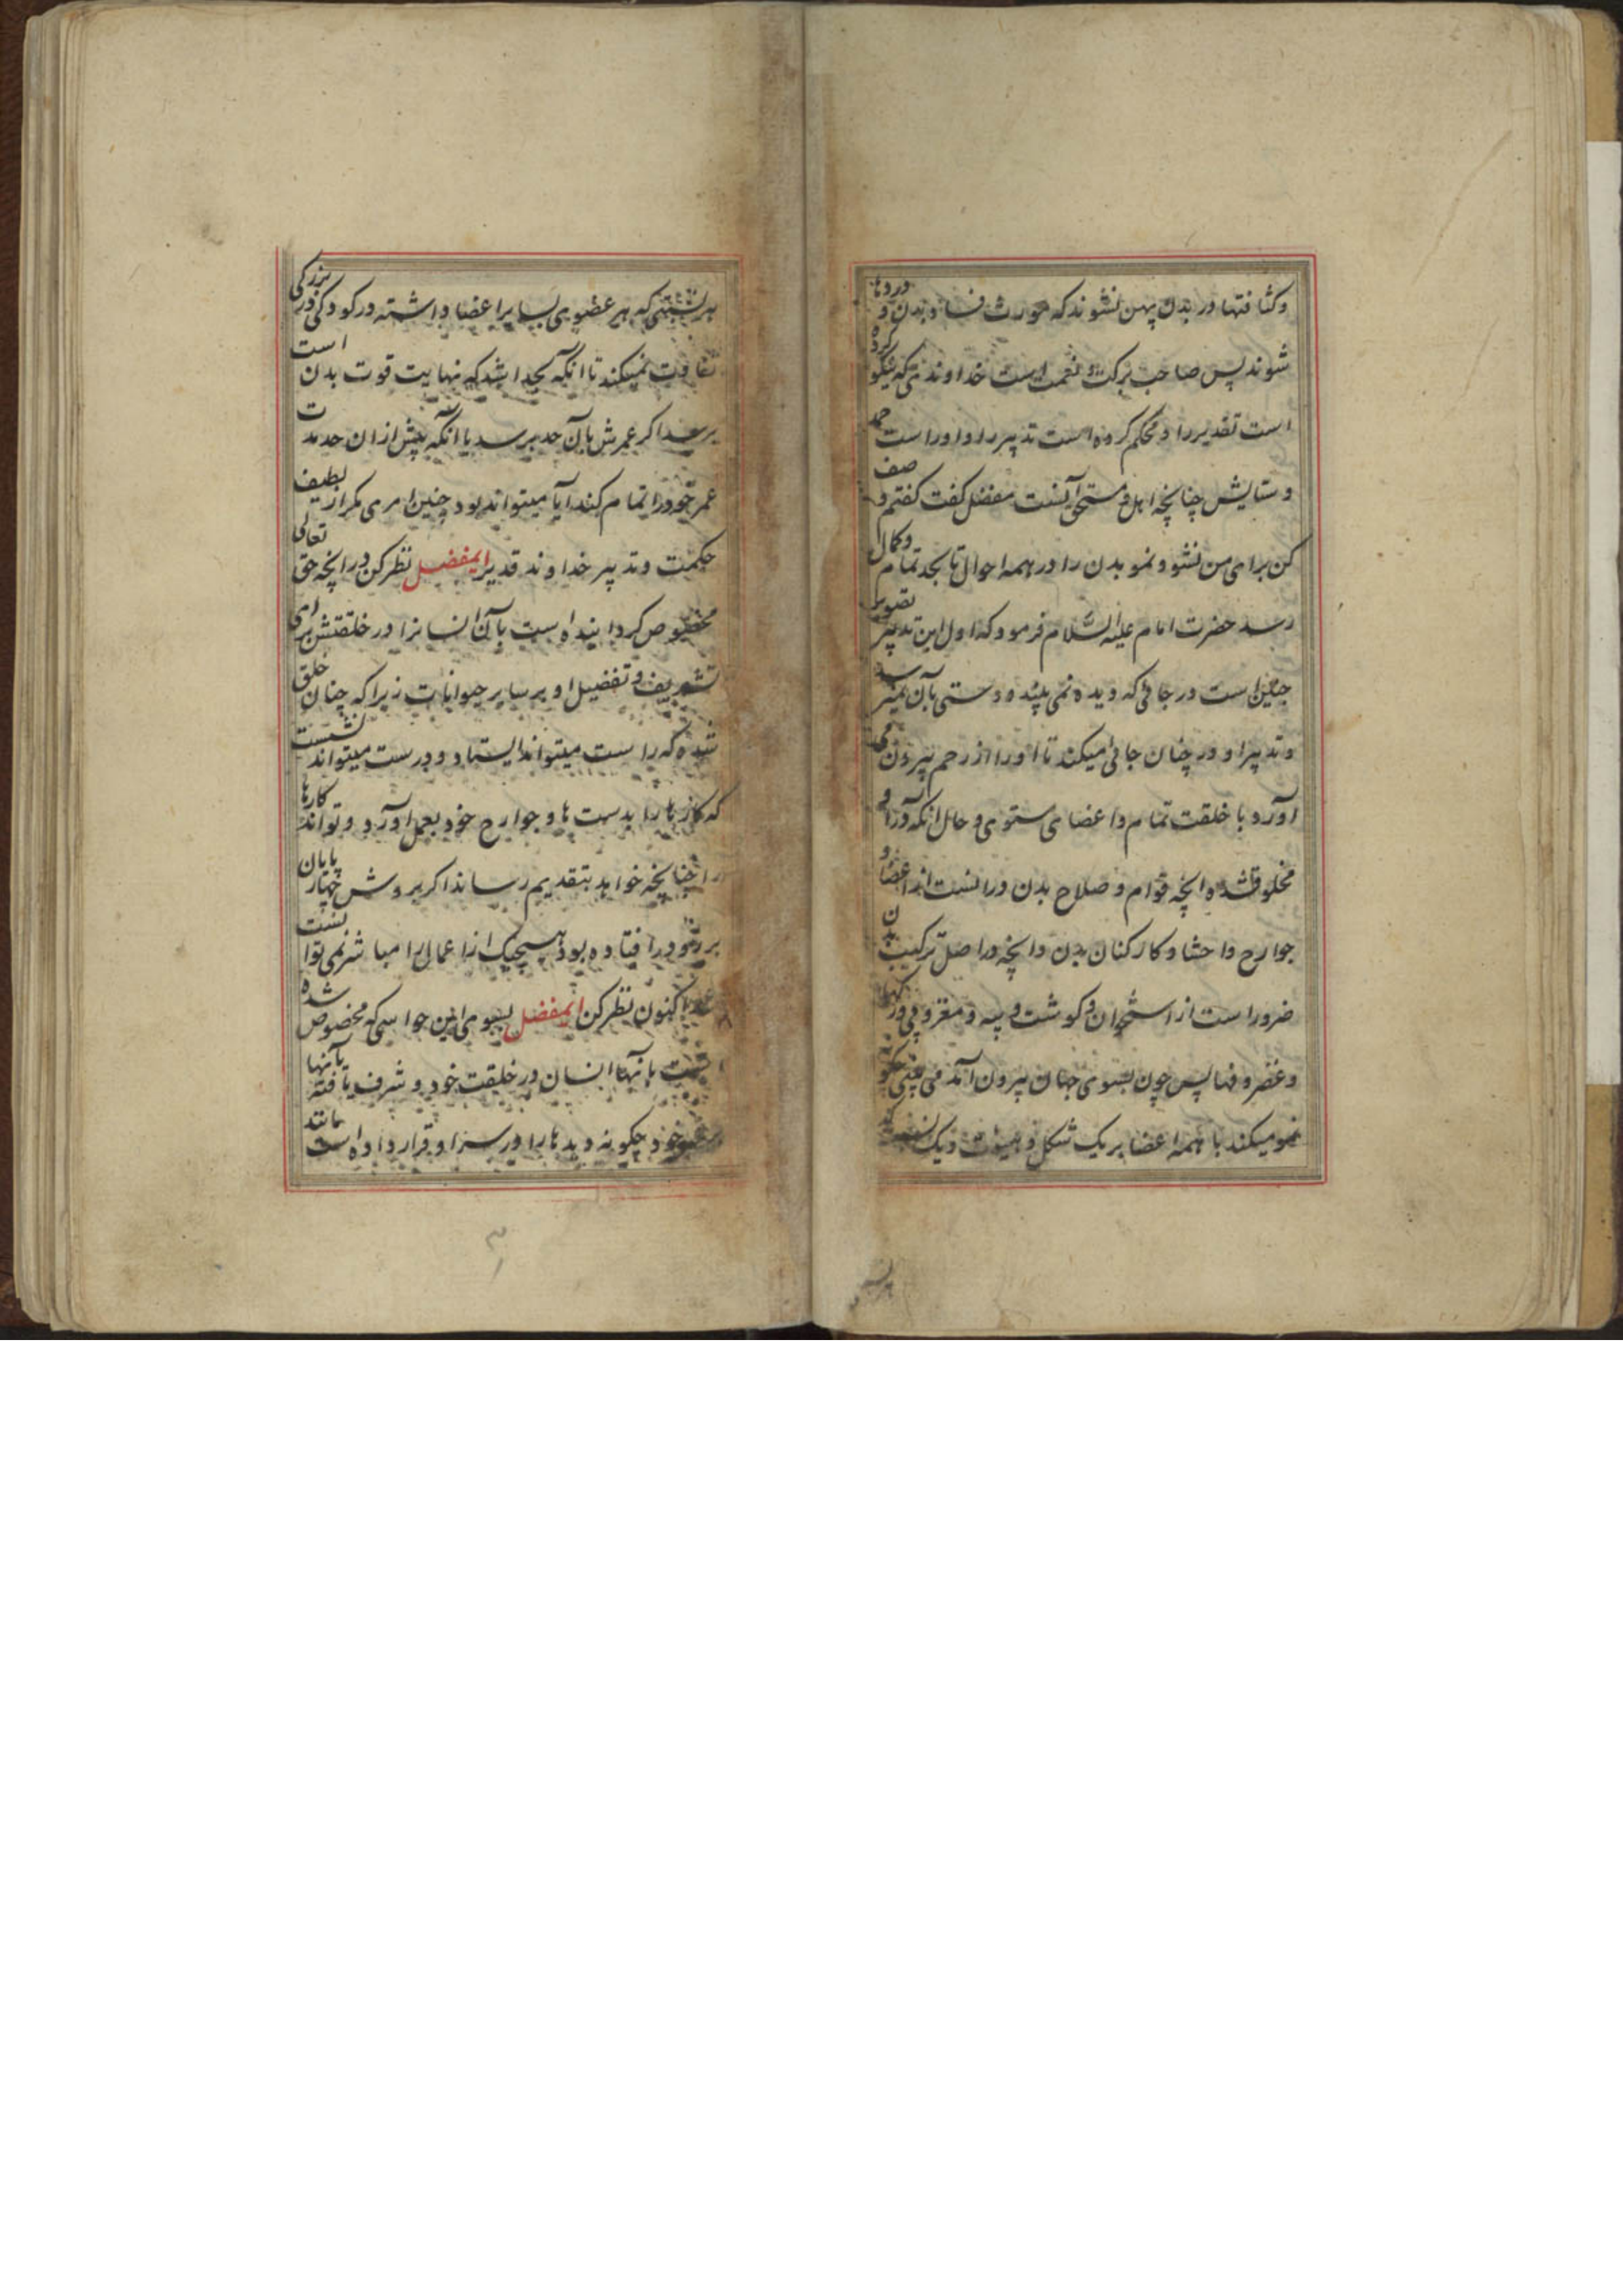 وکثافتها در بدن پهن نشوند که مورث فساد بدن و دردها
شوند پس صاحب برکت و نعمت است خداوندی که نیکو کرده
است تقدیر را و محکم کرده است تدبیر را و او راست حمد
و ستایش چنانچه اهل و مستحق آنست مفضل گفت گفتم وصف
کن برای من نشو و نمو بدن را در همه احوال تا بحد تمام و کمال
رسد حضرت امام علیه السلام فرمود که اول این تدبیر تصویر
جنین است در جائی که دیده نمی بیند و دستی بآن نمیرسد
و تدبیر او در چنان جائی میکند تا او را از رحم بیرون می
آورد با خلقت تمام و اعضای مستوی و حال آنکه در او
مخلوق شده آنچه قوام و صلاح بدن در آنست از اعضا و
جوارح و احشا و کارکنان بدن و آنچه در اصل ترکیب بدن
ضرور است از استخوان و گوشت و پیه و مغز و پی و رگها
و غضروفها پس چون بسوی جهان بیرون آمد می بینی چگونه
نمو میکند با همه اعضا بر یک شکل و هیئت و یک
بهر نسبتی که هر عضوی بسایر اعضا داشته در کودکی در بزرگی
تفاوت نمیکند تا آنکه بحد اشد که نهایت قوت بدن است
برسد اگر عمرش بآن حد برسد یا آنکه پیش از آن حد مدت
عمر خود را تمام کند آیا میتواند بود چنین امری مگر از لطیف
حکمت و تدبیر خداوند قدیر ایمفضل نظر کن در آنچه حق تعالی
مخصوص گردانیده است بآن انسانرا در خلقتش برای
تشریف و تفضیل او بر سایر حیوانات زیرا که چنان خلق
شده که راست میتواند ایستاد و درست میتواند نشست
که کارها را بدست ها و جوارح خود بعمل آورد و تواند کارها
را چنانچه خواهد بتقدیم رساند اگر بروش چهار پایان
بر رو در افتاده بود هیچیک از اعمال را مباشر نمی توانست
شد اکنون نظر کن ایمفضل بسوی این حواسی که مخصوص شده
است بآنها انسان در خلقت خود و شرف یافته بآنها
بر غیر خود چگونه دیدها را در سر او قرار داده است مانند